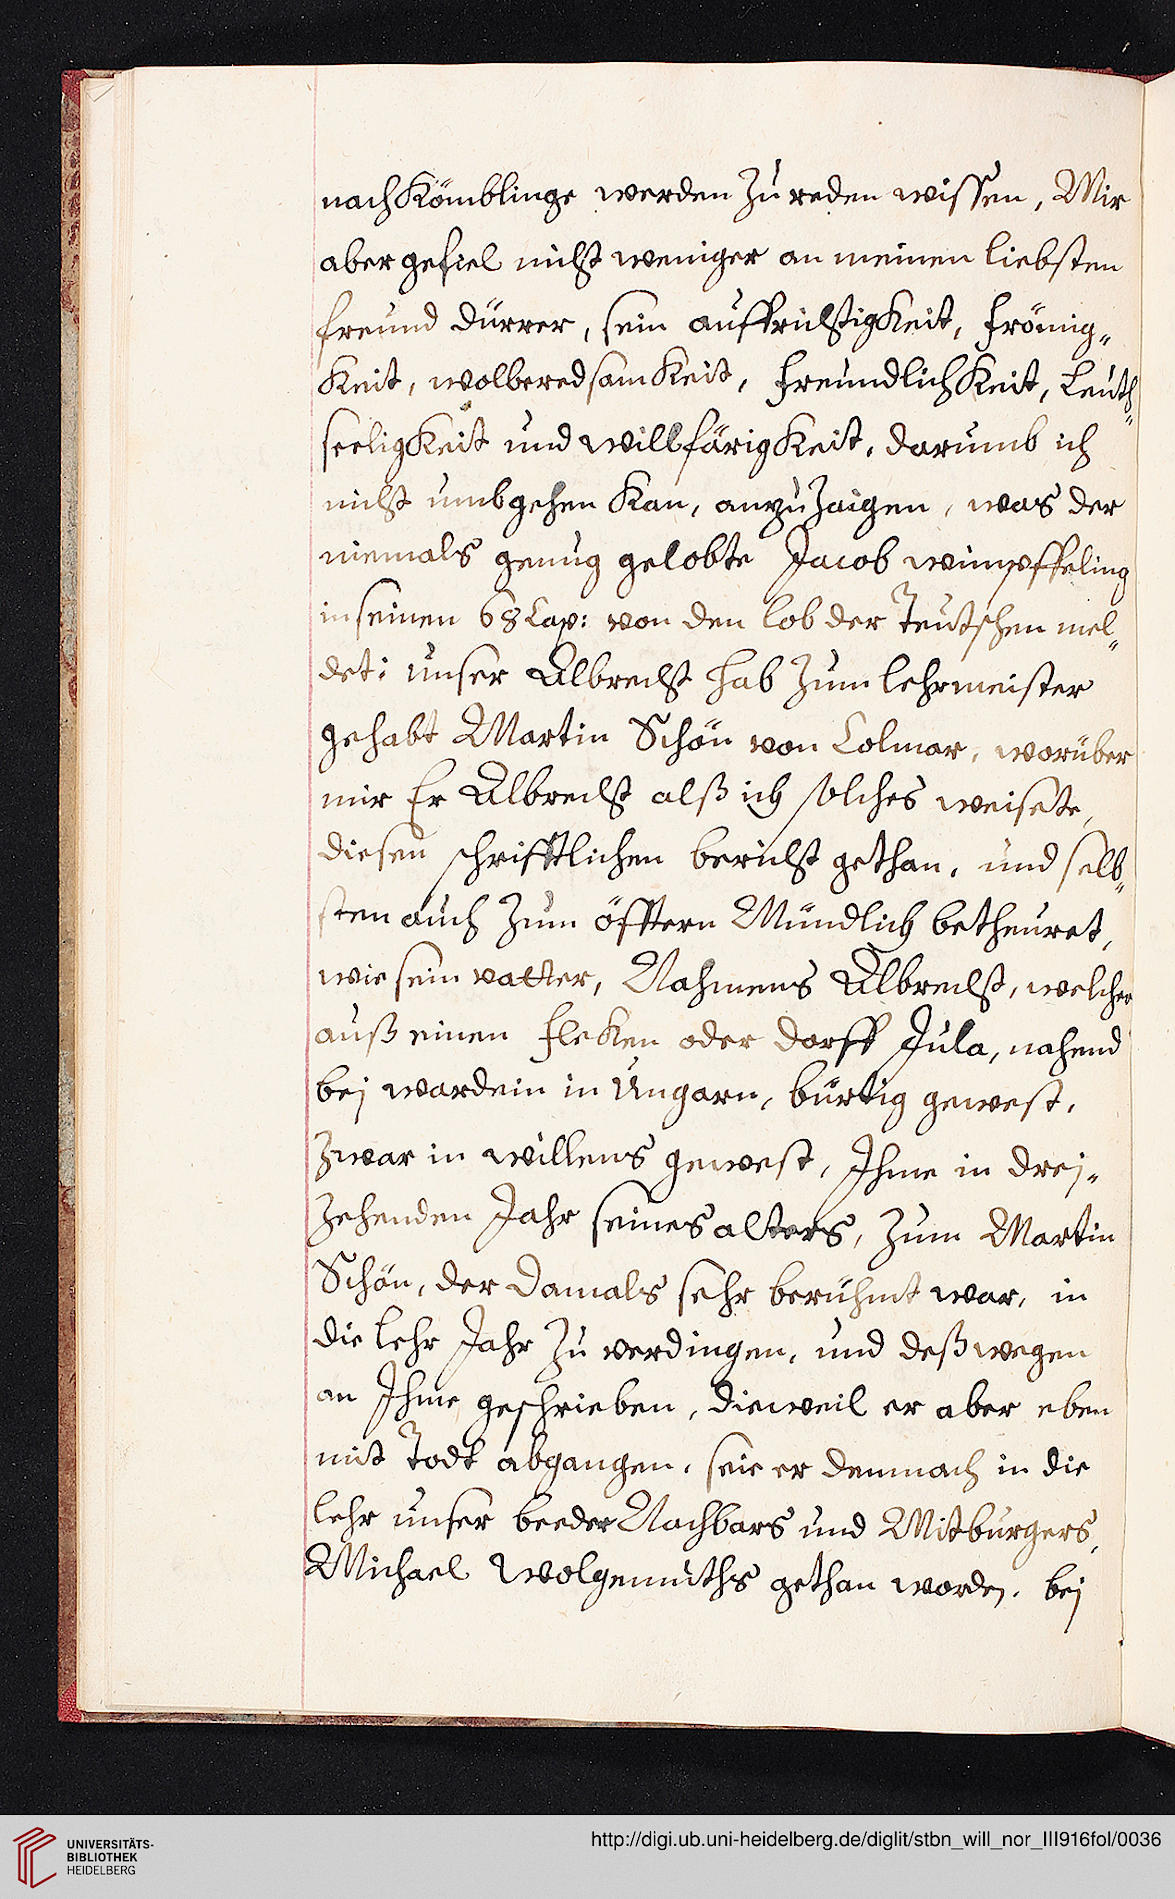 nachKömblinge werden zu reden wissen, Mir
aber gefiel nicht weniger an meinen liebsten
freund dürrer, sein auffrichtigKeit, frömig„
Keit, wolberedsamKeit, freundlichKeit, Leuth„
seeligKeit und willfärigKeit, darumb ich
nicht umbgehen Kan, anzuzaigen, was der
niemals genug gelobte Jacob wimpffeling
in seinen 68 Cap: von den lob der Teutschen mel„
det: unser Albrecht hab zum lehrmeister
gehabt Martin Schön von Colmar, worüber
mir Er Albrecht alß ich solches weisete,
diesen schrifftlichen bericht gethan, und selb„
sten auch zum öfftern Mündlich betheuret,
wie sein vatter, Nahmens Albrecht, welcher
auß einen fleKen oder dorff Jula, nahend
bej wardein in Ungarn, bürtig gewest,
zwar in willens gewest, Ihme in drej„
zehenden Jahr seines alters, zum Martin
Schön, der damals sehr berühmt war, in
die lehr Jahr zu verdingen, und deßwegen
an Ihme geschrieben, dieweil er aber eben
mit Todt abgangen, seie er demnach in die
lehr unser beeder Nachbars und Mitburgers,
Michael Wolgemuths gethan worden. bej
UNIVERSITÄTS-
BIBLIOTHEK
HEIDELBERG
http://digi.ub.uni-heidelberg.de/diglit/stbn_will_nor_III916fol/0036